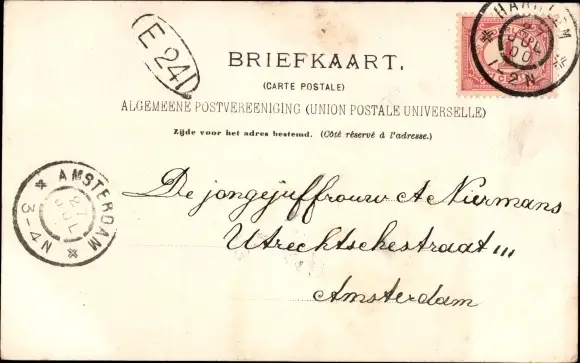 E 24
HAARLEM
27
JUL
00
1-2N
BRIEFKAART.
(CARTE POSTALE)
ALGEMEENE POSTVEREENIGING (UNION POSTALE UNIVERSELLE)
Zijde voor het adres bestemd. (Côté réservé à l'adresse.)
AMSTERDAM
27
JUL
3-4N
De jongejuffrouw A Niermans
Utrechtschestraat 111
Amsterdam